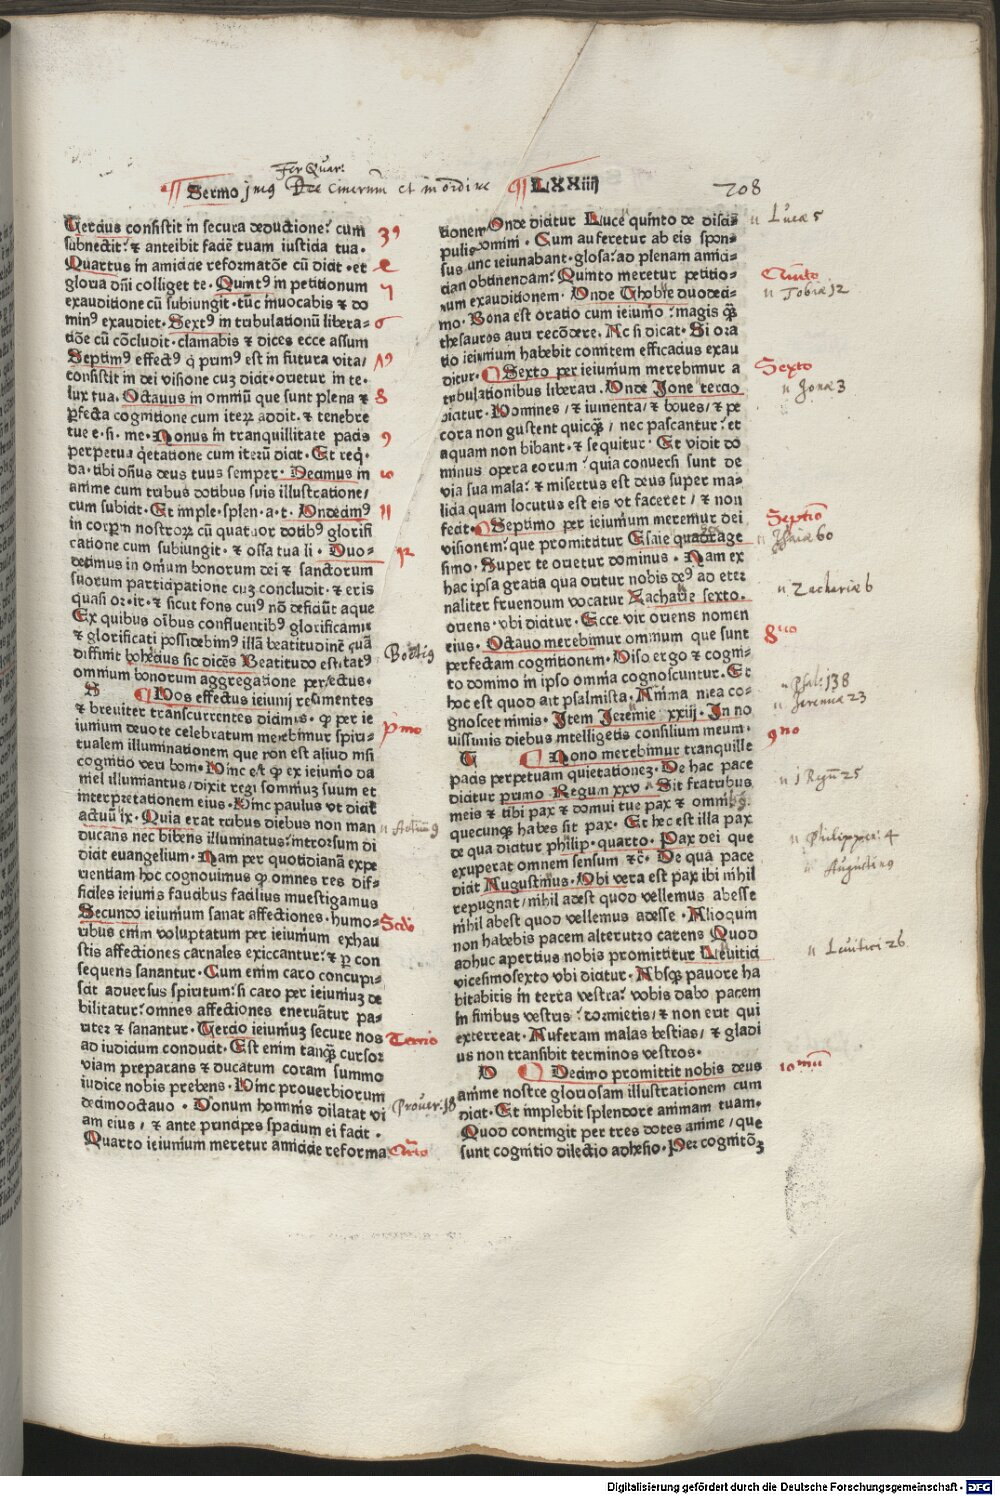 Fer Quar:
Sermo jmus Die Cinerum et in ordine LXXiiij 208
Tercius consistit in secura deductione? cum
subnectit? ⁊ anteibit faciē tuam iusticia tua·
Quartus in amicicie reformatōe cū dicit·et
gloria dn̄i colliget te·Quintꝰ in petitionum
exauditione cū subiungit·tūc inuocabis ⁊ do
minꝰ exaudiet·Sextꝰ in tribulationū libera-
tiōe cū cōcludit·clamabis ⁊ dices ecce assum
Septimꝰ effectꝰ q̇ primꝰ est in futura vita/
consistit in dei visione cuȝ dicit·orietur in te-
lux tua·Octauus in omniū que sunt plena ⁊
ꝑfecta cognitione cum iteꝝ addit·⁊ tenebre
tue e·si·me·Nonus in tranquillitate pacis
perpetua q̇etatione cum iterū dicit·Et req̇·
da·tibi dn̄us deus tuus semper·Decimus in
anime cum tribus dotibus suis illustratione/
cum subicit·Et imple·splen·a·t·Undecimꝰ
in corꝑm nostroꝝ cū quatuor dotibꝰ glorifi
catione cum subiungit·⁊ ossa tua li·Duo-
decimus in omniū bonorum dei ⁊ sanctorum
suorum participatione cuȝ concludit·⁊ eris
quasi or·ir·⁊ sicut fons cuiꝰ nō deficiūt aque
Ex quibus oībus confluentibꝰ glorificamur
⁊ glorificati possidebimꝰ illā beatitudinē quā
diffinit bohecius sic dicēs Beatitudo est statꝰ
omnium bonorum aggregatione perfectus·
S Hos effectus ieiunij resumentes
⁊ breuiter transcurrentes dicimus·ꝙ per ie
iunium deuote celebratum merebimur spiri-
tualem illuminationem que non est aliud nisi
cognitio veri boni·Hinc est ꝙ ex ieiunio da
niel illuminatus/dixit regi somnium suum et
interpretationem eius·Hinc paulus vt dicit
actuū ix·Quia erat tribus diebus non man
ducans nec bibens illuminatus?introrsum di
dicit euangelium·Nam per quotidianā expe
rientiam hoc cognouimus ꝙ omnes res dif-
ficiles ieiunis faucibus facilius inuestigamus
Secundo ieiunium sanat affectiones·humo-
ribus enim voluptatum per ieiunium exhau
stis affectiones carnales exiccantur?⁊ ꝑ con
sequens sanantur·Cum enim caro concupi-
scit aduersus spiritum?si caro per ieiuniuȝ de
bilitatur?omnes affectiones eneruātur pa-
riter ⁊ sanantur·Tercio ieiuniuȝ secure nos
ad iudicium conducit·Est enim tanq̄ȝ cursor
viam preparans ⁊ ducatum coram summo
iudice nobis prebens·Hinc prouerbiorum
decimooctauo·Donum hominis dilatat vi
am eius/⁊ ante principes spacium ei facit·
Quarto ieiunium meretur amicicie reforma
3ꝰ
4
5
6
7ꝰ
8
9
10
11
12
Boetiꝰ
pͦmo
Actuū 9
Scdo
Tercio
Prouer:18
Qurto
tionem Unde dicitur Luce quinto de disci-
pulis domini·Cum auferetur ab eis spon-
sus tunc ieiunabant·glosa?ad plenam amici-
ciam obtinendam?Quinto meretur petitio-
num exauditionem·Unde Thobie duodeci-
mo·Bona est oratio cum ieiunio?magis q̄ȝ
thesauros auri recōdere·Ac si dicat·Si ora
tio ieiunium habebit comitem efficacius exau
ditur·Sexto per ieiunium merebimur a
tribulationibus liberari·Unde Jone tercio
dicitur·Homines/⁊ iumenta/⁊ boues/⁊ pe
cora non gustent quicq̄ȝ/nec pascantur?et
aquam non bibant·⁊ sequitur·Et vidit do
minus opera eorum?quia conuersi sunt de
via sua mala?⁊ misertus est deus super ma-
licia quam locutus est eis vt faceret/⁊ non
fecit·Septimo per ieiunium meremur dei
visionem?que promittitur Esaie quadrage
simo·Super te orietur dominus·Nam ex
hac ipsa gratia qua oritur nobis deꝰ ad eter
naliter fruendum vocatur Zacharie sexto·
oriens·vbi dicitur·Ecce vir oriens nomen
eius·Octauo merebimur omnium que sunt
perfectam cognitionem·Uiso ergo ⁊ cogni-
to domino in ipso omnia cognoscuntur·Et
hoc est quod ait psalmista·Anima mea co-
gnoscet nimis·Item Jeremie xxiij·In no
uissimis diebus intelligetis consilium meum·
T Nono merebimur tranquille
pacis perpetuam quietationeȝ·De hac pace
dicitur primo Regum xxv·Sit fratribus
meis ⁊ tibi pax ⁊ domui tue pax ⁊ omnibꝰ
quecunqȝ habes sit pax·Et hec est illa pax
de qua dicitur philip·quarto·Pax dei que
exuperat omnem sensum ⁊c̄·De qua pace
dicit Augustinus·Ubi vera est pax ibi nihil
repugnat/nihil adest quod vellemus abesse
nihil abest quod vellemus adesse·Alioquin
non habebis pacem alterutro carens Quod
adhuc apertius nobis promittitur Leuitici
vicesimosexto vbi dicitur·Absqȝ pauore ha
bitabitis in terra vestra?vobis dabo pacem
in finibus vestris?dormietis/⁊ non erit qui
exterreat·Auferam malas bestias/⁊ gladi
us non transibit terminos vestros·
V Decimo promittit nobis deus
anime nostre gloriosam illustrationem cum
dicit·Et implebit splendore animam tuam·
Quod contingit per tres dotes anime/que
sunt cognitio dilectio adhesio·Per cognitōȝ
Lucæ 5
Quinto
Tobiæ 12
Sexto
Jonæ 3
Septīo
Isaiæ 60
Zachariæ 6
8uo
Psal: 138
Jeremiæ 23
9no
1 Regū 25
Philippen: 4
Augustinꝰ
Leuitici 26
10mū
Digitalisierung gefördert durch die Deutsche Forschungsgemeinschaft - DFG